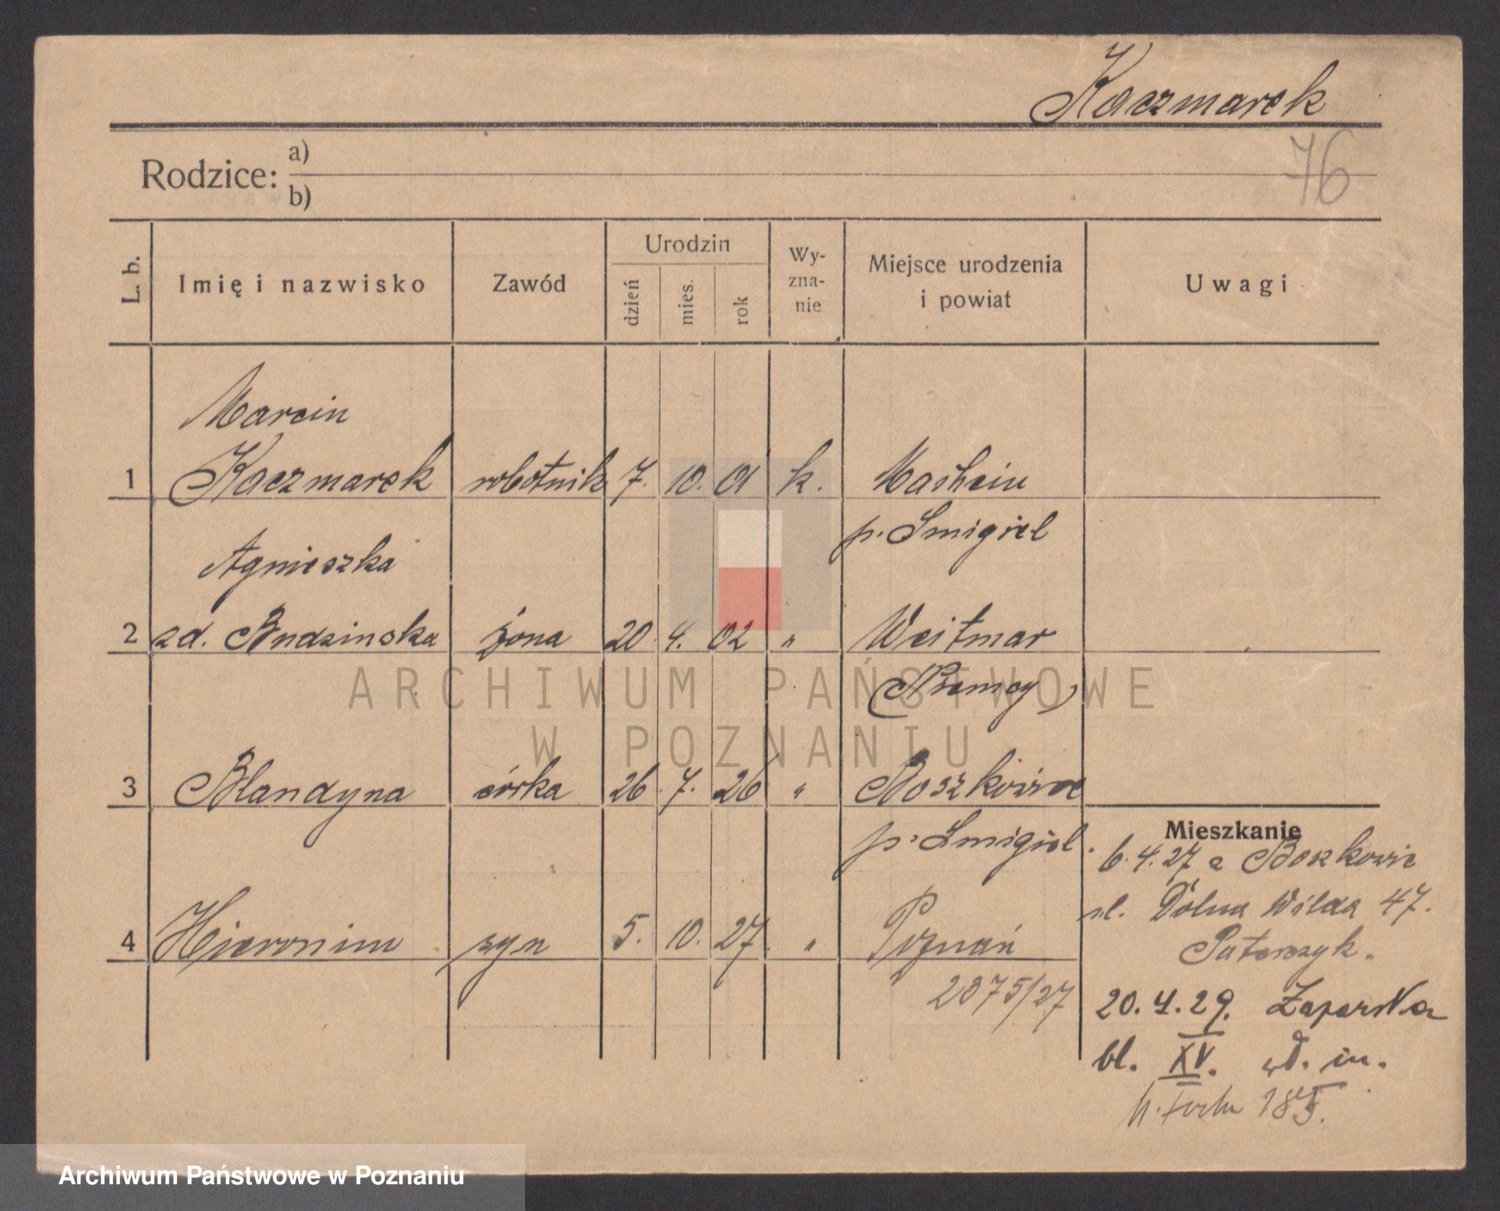 Kaczmarek
76
Rodzice: a)
b)
L. b. Imię i nazwisko Zawód Urodzin dzień mies. rok Wy-zna-nie Miejsce urodzenia i powiat Uwagi
Marcin
1 Kaczmarek robotnik 7. 10. 01 k.
p. Śmigiel
Agnieszka
2 zd. Budzinska żona 20. 4. 02 " Weitmar
(Niemcy)
3 Blandyna córka 26. 7. 26 "
p. Śmigiel.
Mieszkanie
6.4.27 z
ul. Dolna Wilda 47.
4 Hieronim syn 5. 10. 27. " Poznań
2375/27
20.4.29.
bl. XV.
185.
ARCHIWUM PAŃSTWOWE
W POZNANIU
Archiwum Państwowe w Poznaniu